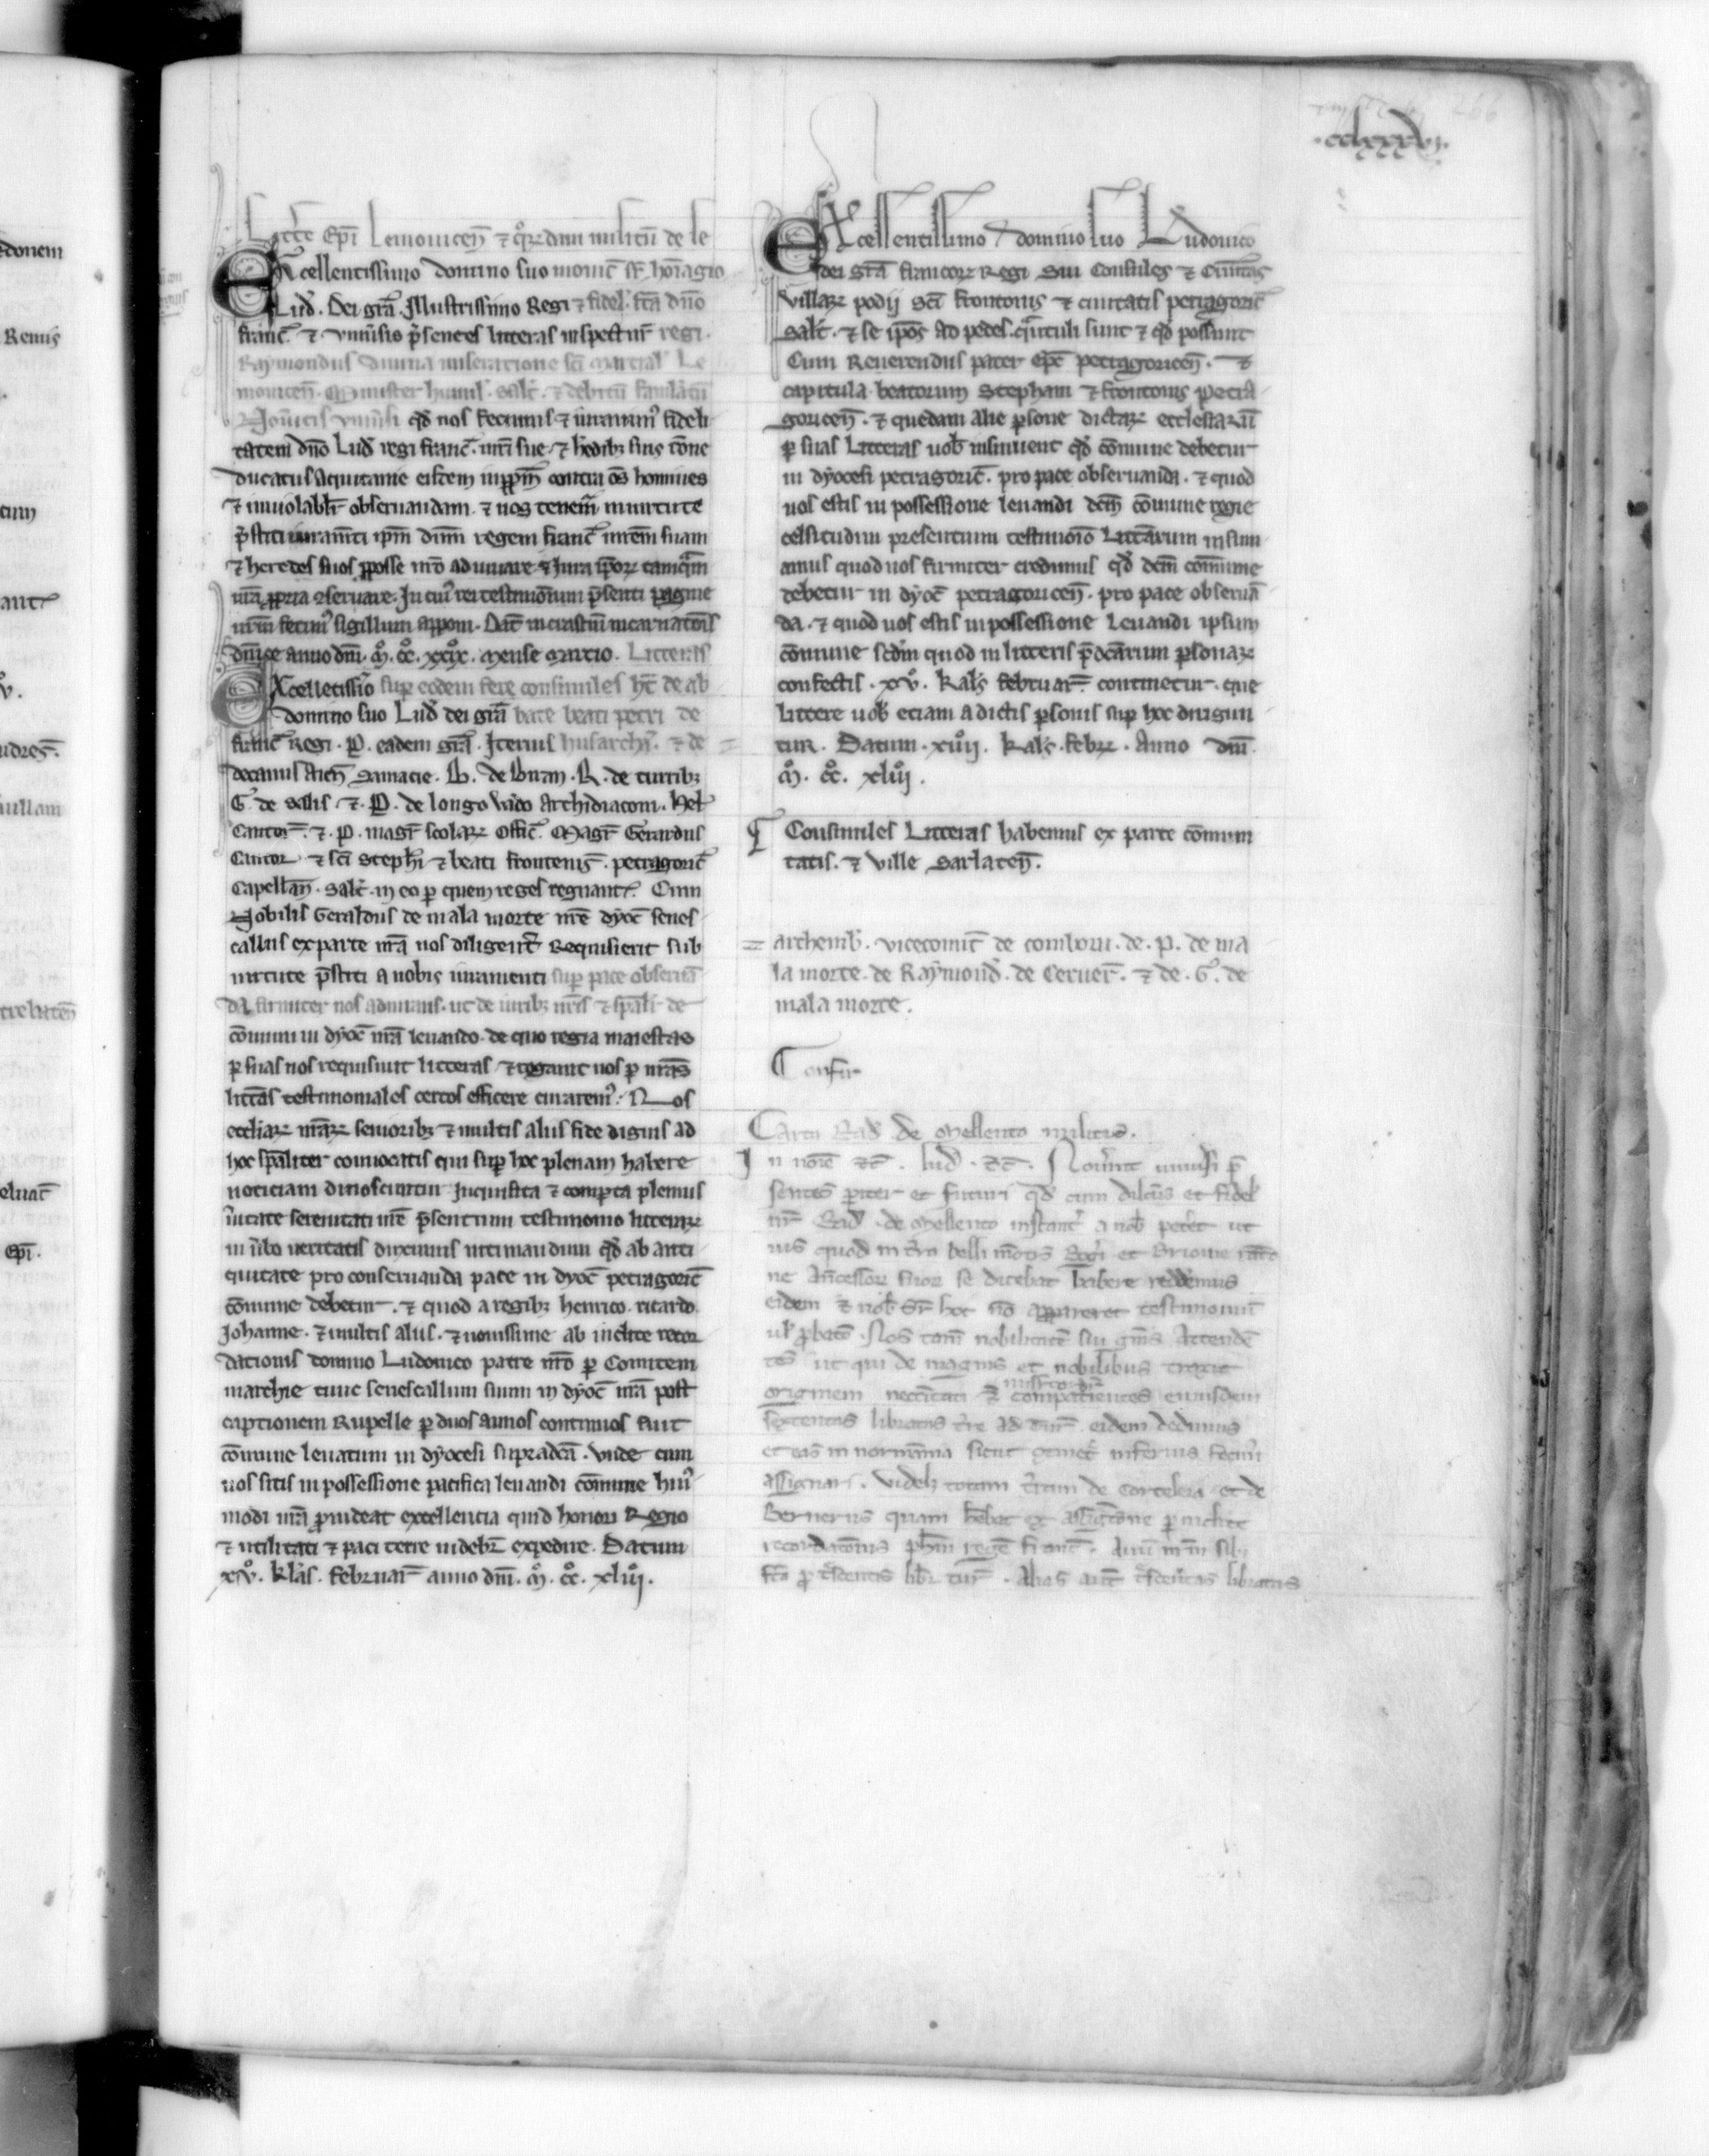 ·cclxxxvj·
Litt̃e Ep̃i Lemouiceñ ⁊ q̊rꝝdam militũ de le
EXcellentissimo domino suo mouic̃ sr̃ homagio
Lud̃. Dei gr̃a. Jllustrissimo Regi ⁊ fidel̃. fc̃a dño
franc̃. ⁊ vniũsis p̃sentes litteras inspectur̃ regi.
Raymondus diuina miseratione sc̃i marcial̃ Le
mouiceñ. Minister humil̃. sal̃t. ⁊ debitũ famulatũ
Nou̾itis vniũsi qd̃ nos fecimus ⁊ iurauim⁹ fideli
tatem dño Lud̃ regi franc̃. mr̃i sue ⁊ h̾edib; suis rõne
ducatus aquitanie eisdem inppm̃ contra õs homines
⁊ inuiolabl̃r obseruandam. ⁊ nos tenem̃ in uirtute
p̃stiti iuram̃ti ip̃m dñm regem franc̃ mr̃em suam
⁊ heredes suos ꝓposse nr̃o adiuuare ⁊ Jura ip̃oꝝ tamq̃m
nr̃a ꝓpria ꝯseruare. Jn cui⁹ rei testimonium p̃senti pagine
nr̃m fecim⁹ sigillum apponi. Dat̃ in crastiñ incarnatõis
dñice anno dñi. M̊. C̊C. xx̊ix. mense marcio. Litteris
EXcelletissĩo sup̱ eodem fere consimiles ht̃ de ab
domino suo Lud̃ dei gr̃a bate beati petri de
franc̃ Regi. P. eadem gr̃a. Jterius husarch̃. ⁊ de =
decanus Aieñ Samacie. B. de bnan. R. de turrib;
G. de Salis ⁊. P. de longo vado Archidiaconi. hel̃
Cantor̃. ⁊. P. magr̃ scolaꝝ Offic̃. Magr̃ Gerardus
Cantor ⁊ sc̃i Steph̃i ⁊ beati frontonis̃. petragoric̃
Capellañ. Sal̃t. in eo p̱ quem reges regnant. Cum
Nobilis Geraldus de mala morte nr̃e dyoc̃ senes
callus ex parte nr̃a nos diligenť Requisierit sub
uirtute p̃stiti a nobis iuramenti sup̱ pace obseruã
da firmiter nos adiurans. ut de iurib; nr̃is ⁊ sp̃ali de
cõmuni in dyoc̃ nr̃a leuando. de quo regia maiestas
p̱ suas nos requisiuit litteras ⁊ rogauit uos p̱ nr̃as
litt̃as testimoniales certos efficere curarem⁹. Nos
eccl̃iaꝝ nr̃aꝝ senioribȝ ⁊ multis aliis fide dignis ad
hoc sp̃aliter conuocatis qui sup̱ hoc plenam habere
noticiam dinoscuntur Jnquisita ⁊ comp̱ta plenius
ũitate serenitati nr̃e p̃sentium testimonio litteraꝝ
in ũbo ueritatis duximus intimandum qd̃ ab anti
quitate pro conseruanda pace in dyoc̃ petragoric̃
cõmune debetur. ⁊ quod a regibȝ henrico. ricardo.
Johanne. ⁊ multis aliis. ⁊ nouissime ab inclite recor
dationis domino Ludouico patre nr̃o p̱ Comitem
marchie tunc senescallum suum in dyoc̃ nr̃a post
captionem Rupelle p̱ duos annos continuos fuit
cõmune leuatum in dyocesi supradc̃a. Vnde cum
uos sitis in possessione pacifica leuandi cõmune hui⁹
modi nr̃a p̱uideat excellentia quid honori Regio
⁊ utilitati ⁊ paci terre uidebr̃ expedire. Datum
xv̊. kl̃as. februar̃ anno dñi. M̊. C̊C. xliij̊.
EXcellentissimo domino suo Ludouico
dei gr̃a francoꝝ Regi Sui Consules ⁊ Cõmũitas
villaꝝ podij sc̃i frontonis ⁊ ciuitatis petragoric̃
Sal̃t. ⁊ se ip̃os ad pedes. q̃ntuli sunt ⁊ qd̃ possunt
Cum Reuerendus pater Ep̃c petragoriceñ. ⁊
capitula beatorum Stephani ⁊ frontonis Petra
goriceñ. ⁊ quedam alie p̱sone dictaꝝ ecclesiarũ
p̱ suas Litteras uob̃ insinuent qd̃ cõmune debetur
in dyocesi petragoric̃. pro pace obseruanda. ⁊ quod
uos estis in possessione leuandi dc̃m cõmune regie
celsitudini presentium testimoĩo Litt̃arum insinu
amus quod nos firmiter credimus qd̃ dc̃m cõmune
debetur in dyoc̃ petragoriceñ. pro pace obseruã
da. ⁊ quod uos estis in possessione leuandi ipsum
cõmune scd̃m quod in litteris p̃dc̃arum p̱sonaꝝ
confectis. xv̊. kal̃s februar̃. continetur. que
littere uob̃ etiam a dictis p̱sonis sup̱ hoc dirigun
tur. Datum. xiiij̊. kal̃s. febrꝝ. Anno dñi
M̊. C̊C. xliij̊.
¶ Consimiles Litteras habemus ex parte cõmuni
tatis. ⁊ ville Sarlateñ.
= archemb̃. vicecomit̃ de comborn. de. P. de ma
la morte. de Raymond̃. de Ceruer̃. ⁊ de. G̊. de
mala morte.
Confir
Carta Rad̃ de Mellento militis.
Jn nõie ⁊c̃. lud̃. ⁊c̃. Nou̾int uniũsi p̃
sentes pariter et futuri qd̃ cum dilc̃us et fidel̃
nr̃ Rad̃. de Mellento instant̾ a nob̃ pet̾et ut
ius quod in t̾ra belli mõtis Rog̾i et Brionie rac̃o
ne Añcessoꝝ suoꝝ se dicebat habere redd̾emus
eidem ⁊ nob̃ sr̃ hoc nõ appareret testimoniũ
ul̃ p̱batõ. Nos tam̃ nobilitatẽ sui gñis Attendẽ
tes ut qui de magnis et nobilibus traxit
originem neccĩtati ⁊ compatientes eiusdem
sexcentas libratas t̾re ad tur̃ eidem dedimus
et eas in normãnia sicut ꝯtinet̾ inferius fecim⁹
assignari. Videlȝ totam t̾ram de Cortelera et de
Bernerus quam h̃ebat ex assigc̃one p̱ inclite
recordatõnis ph̃m regẽ franc̃.
fc̃a p̱ t̾scentis libr̃ tur̃. Alias aut̃ t̾scentas libratas